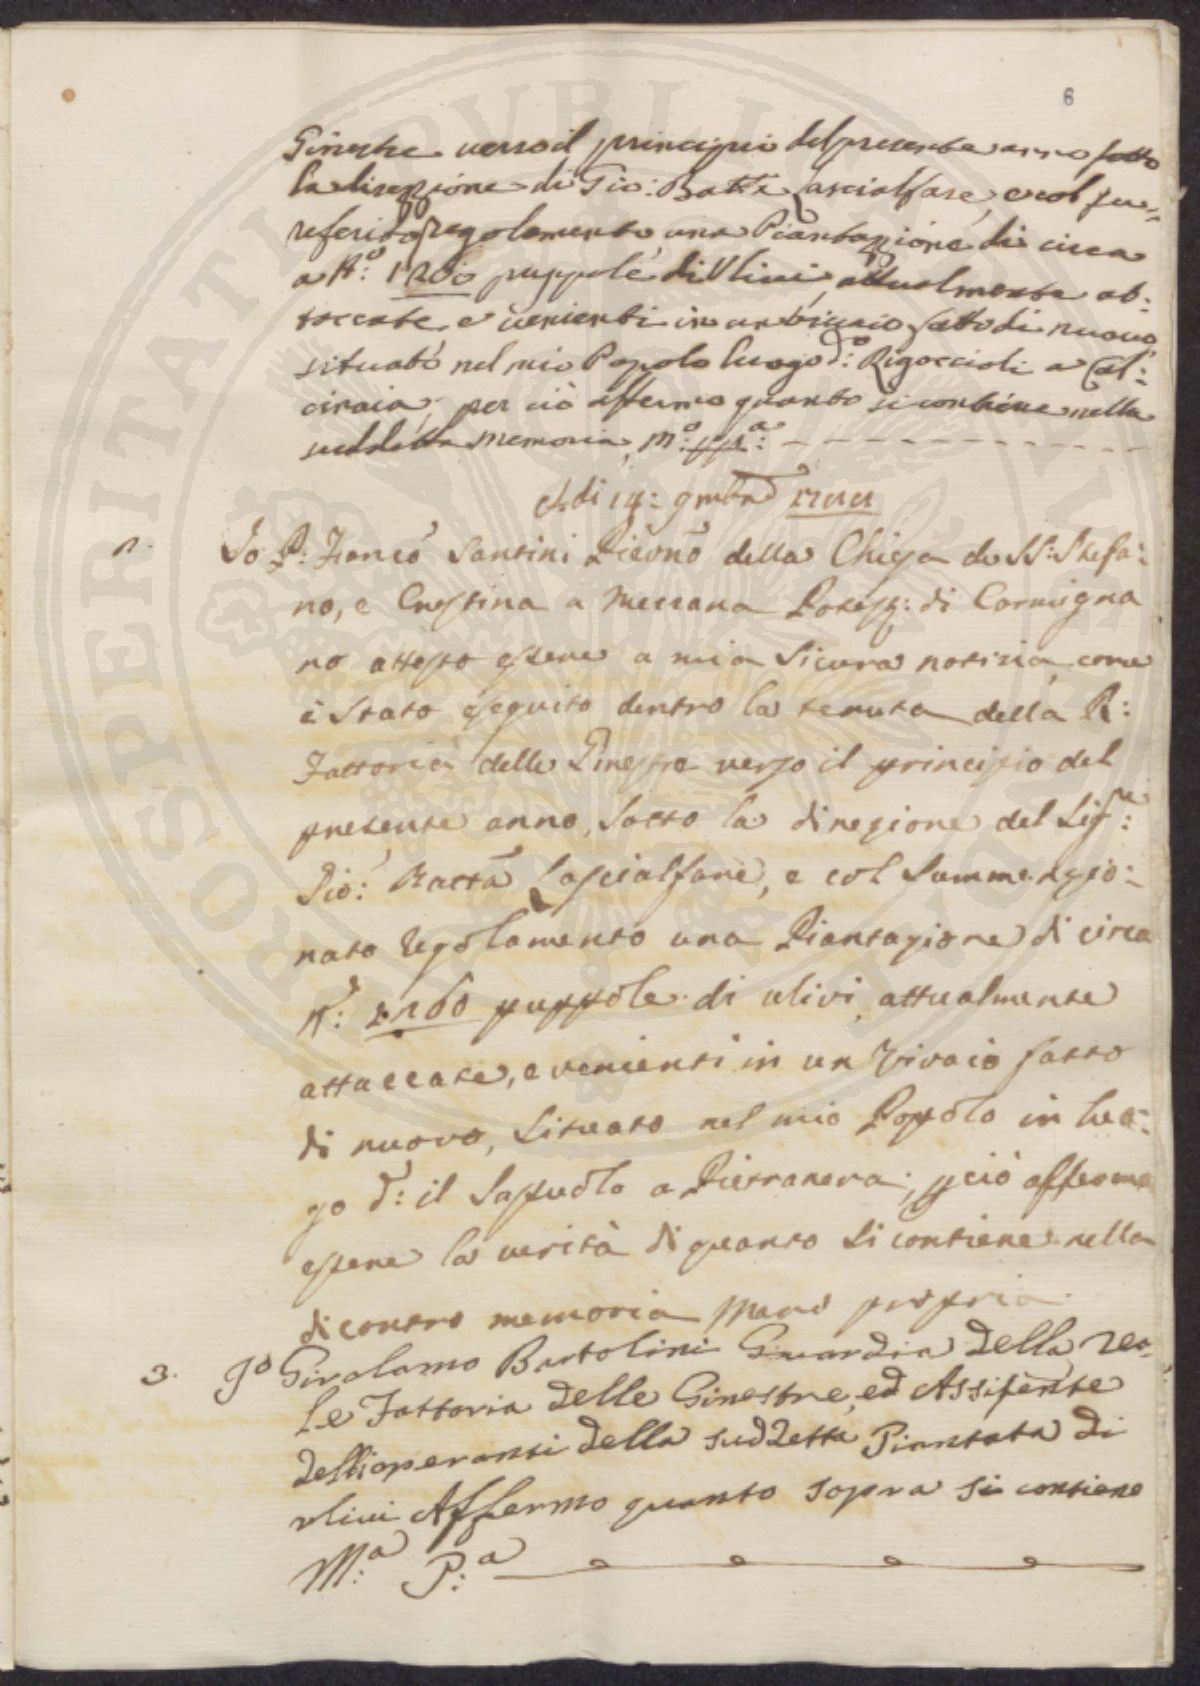 6
Ginestre verso il principio del presente anno sotto
la direzzione di Gio: Batt:a Lascialfare, e col su=
referito regolamento una Piantazzione di circa
a N.o: 1200 puppole di Ulivi, attualmente at=
taccate e venienti in un vivaio fatto di nuovo,
situato nel mio Popolo luogo d.o: Rigoccioli a Cal=
cinaia; per ciò affermo quanto si contiene nella
suddetta memoria, m.o: pp.a:
A di 14: 9mbre
2. Io P: Franc.o Santini Pievno della Chiesa de SS: Stefa=
no, e Cristina a Mezzana Potest: di Carmigna
no attesto essere a mia sicura notizia, come
è stato eseguito dentro la tenuta della R:
Fattoria delle Ginestre verso il principio del
presente anno, sotto la direzione del Sig.re:
Gio: Batta Lascialfare, e col summenzio=
nato regolamento una Piantagione di circa
N.o: 2260 puppole di ulivi, attualmente
attaccate, e venienti in un Vivaio fatto
di nuovo, situato nel mio Popolo in luo=
go d.o: il Sapuolo a Pietranera; p ciò affermo
essere la verità di quanto si contiene nella
di contro memoria Mano propria.
3. Io Girolamo Bartolini Guardia della rea=
le Fattoria delle Ginestre, ed Assistente
dellioperanti della suddetta Piantata di
ulivi Affermo quanto sopra si contiene
M:a P:a
PROSPERITATI PVBLICAE